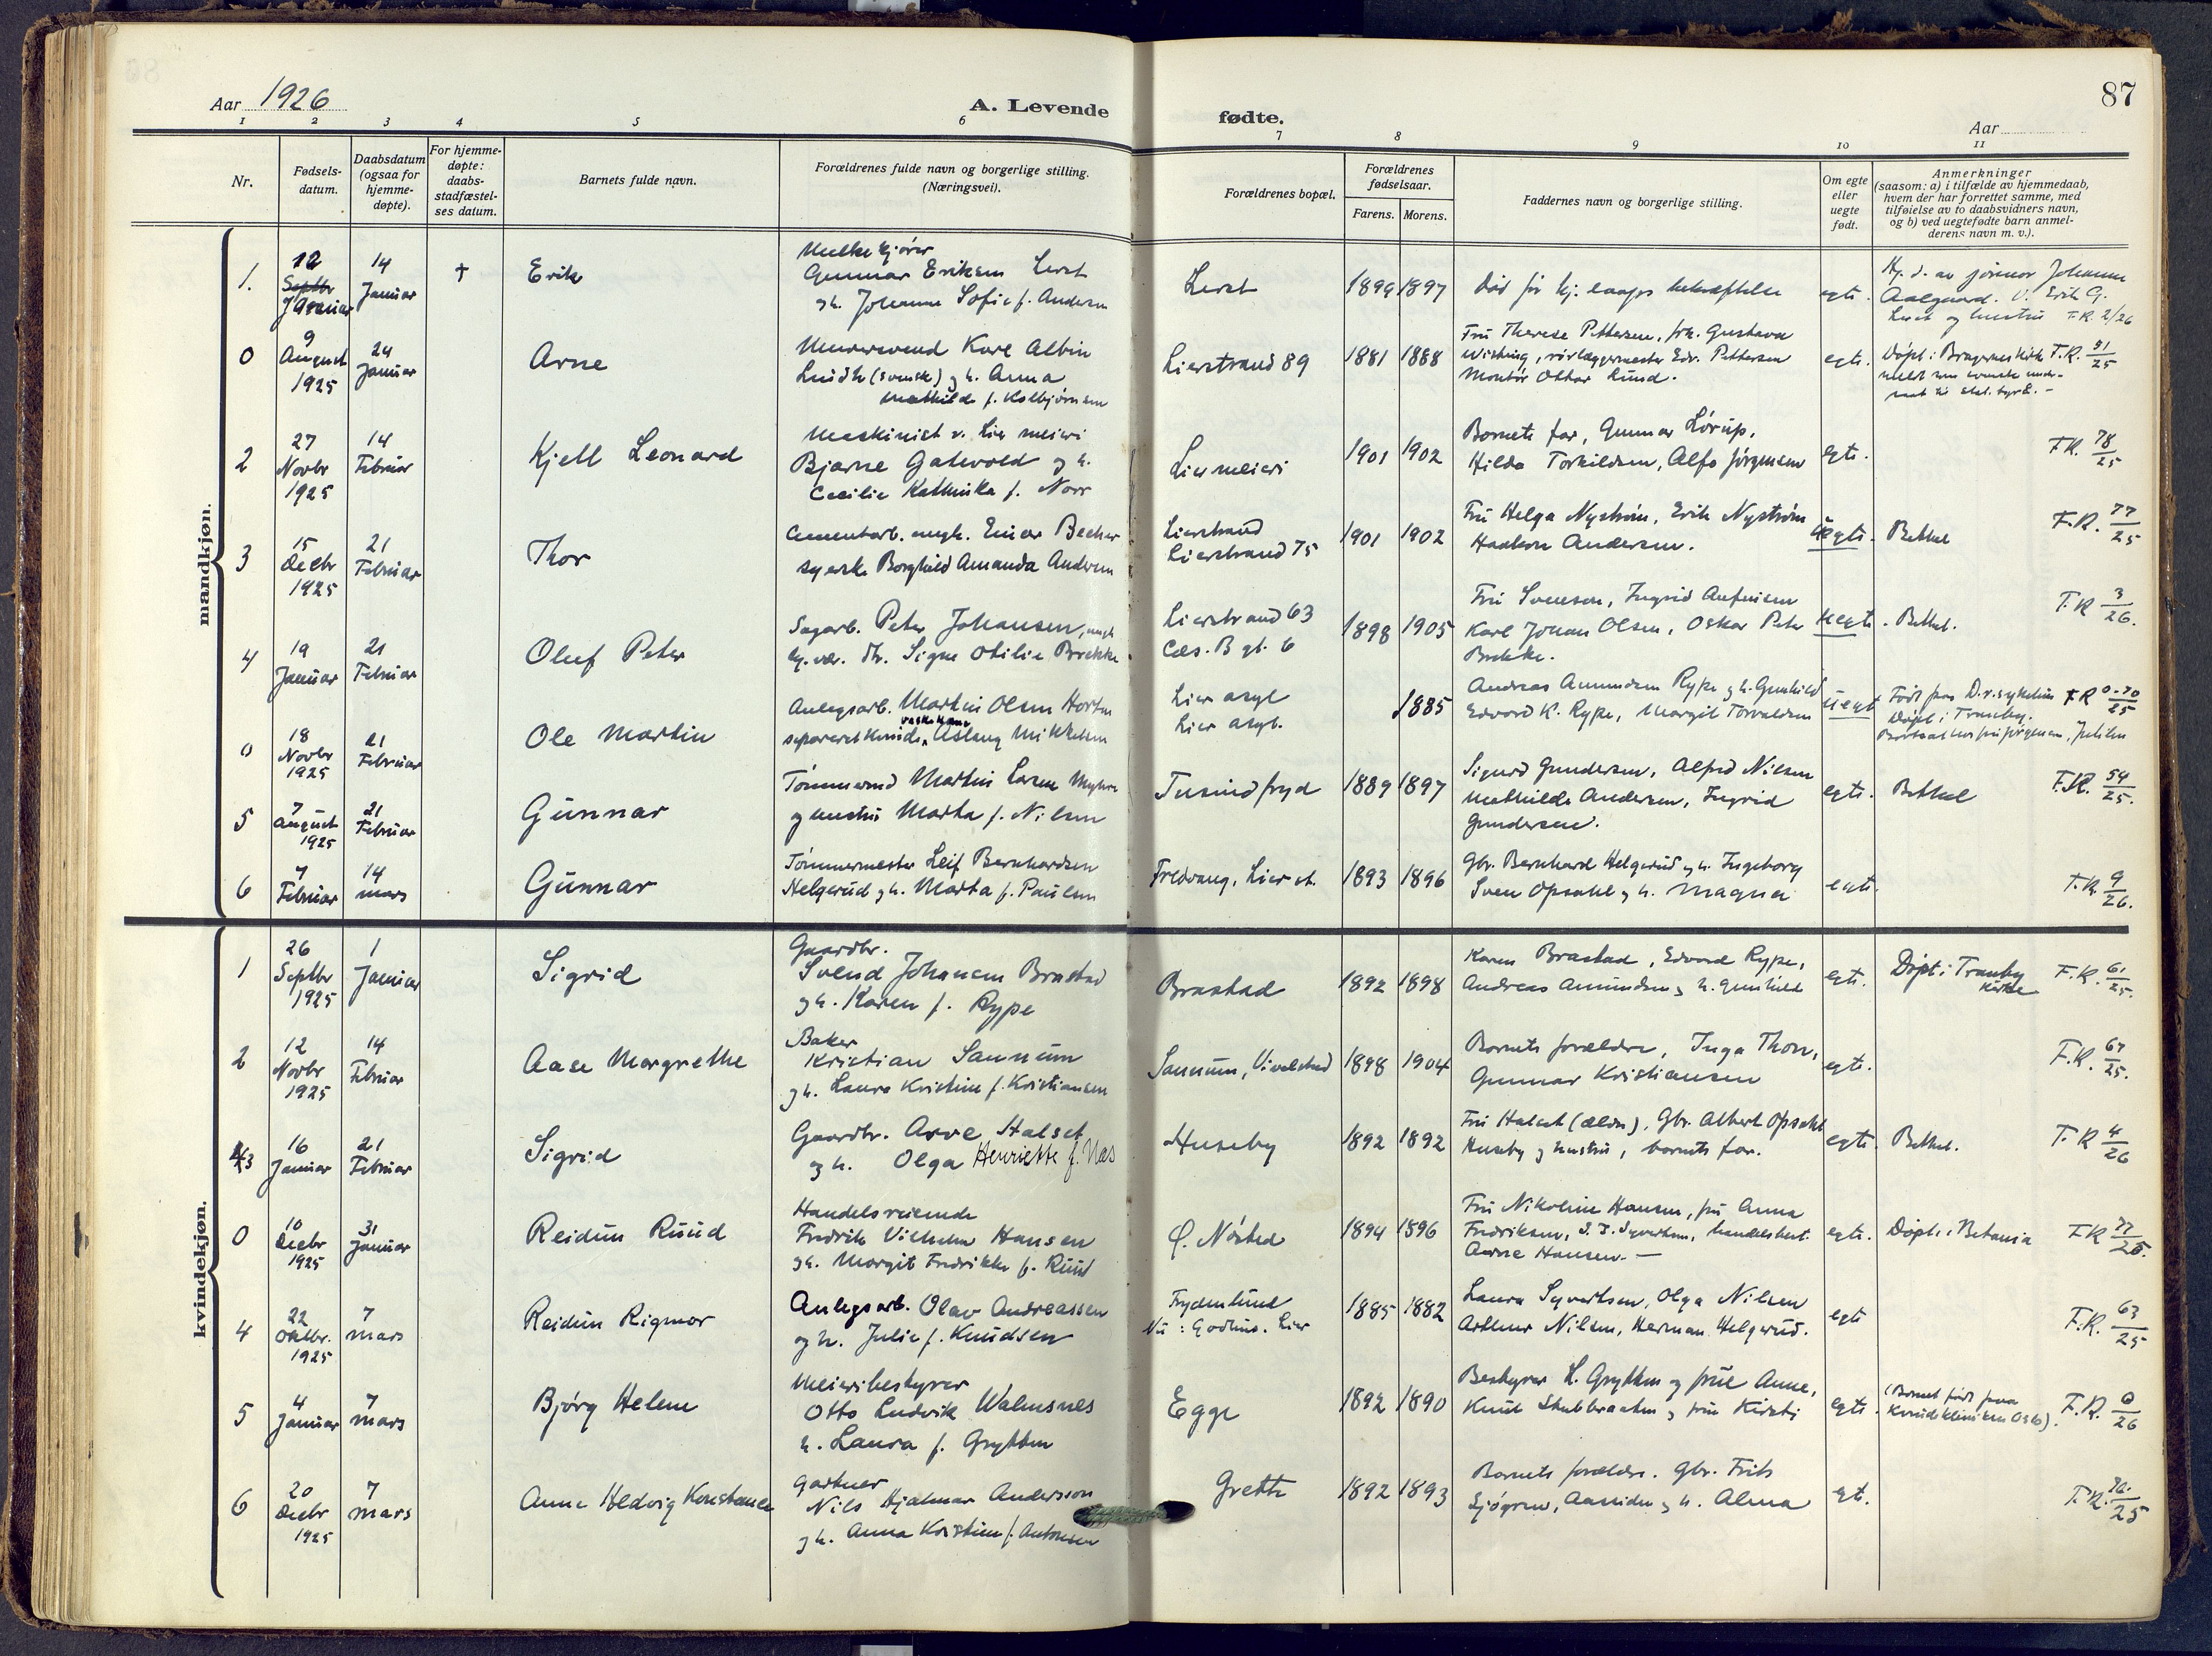 Aar 1926
A. Levende
fødte.
Aar
87
1 2 3 4 5 6 7 8 9 10 11
Nr.
Fødsels-
datum.
Daabsdatum
(ogsaa for
hjemme-
døpte).
For hjemme-
døpte:
daabs-
stadfæstel-
ses datum.
Barnets fulde navn.
Forældrenes fulde navn og borgerlige stilling.
(Næringsvei).
Forældrenes bopæl.
Forældrenes
fødselsaar.
Farens. Morens.
Faddernes navn og borgerlige stilling.
Om egte
eller
uegte
født.
Anmerkninger
(saasom: a) i tilfælde av hjemmedaab,
hvem der har forrettet samme, med
tilføielse av to daabsvidners navn,
og b) ved uegtefødte barn anmel-
derens navn m. v.).
mandkjøn.
1.
12
Septbr
Januar
14
Januar
+
Erik
Melkekjører
Gunnar Eriksen Lerst
g h. Johanne Sofie f. Andersen
Lerst
1899 1897
død før kj. daaps bekræftelse
egte.
Hj. d. av jormor Johanne
Aalgaard. V. Erik G.
Lerst og hustru F.R. 2/26
0
9
August
1925
24
Januar
Arne
Murersvend Karl Albin
Lindh (svensk) g h. Anna
Mathilde f. Kolbjørnsen
Lierstrand 89
1881 1888
Fru Therese Pettersen, frk. Gustava
Wishing, rørlæggermester Edv. Pettersen
Montør Ottar Ruud.
egte.
Døpt i Bragernes kirke F.R. 51/25
2
27
Novbr
1925
14
Februar
Kjell Leonard
Maskinist v. Lier meieri
Bjarne Gatevold g h.
Cecilie Kathinka f. Norr
Lier meieri
1901 1902
Barnets far, Gunnar Lørup,
Hilda Torkildsen, Alfo Jørgensen
egte.
F.R. 78/25
3
15
Decbr
1925
21
Februar
Thor
Cementarb. ungk. Einar Becher
syerske Borghild Amanda Andersen
Lierstrand
Lierstrand 75
1901 1902
Fru Helga Nystrøm, Erik Nystrøm
Haakon Andersen.
uegte.
Bethel
F.R. 77/25
4
19
Januar
21
Februar
Oluf Peter
Sagarb. Peter Johansen, ungk.
Signe Otilie Brekke
Lierstrand 63
Cæs. B gt. 6
1898 1905
Fru Svenson, Ingrid
Karl Johan Olsen, Oskar Peter
Brekke.
uegte.
Bethel.
F.R 3/26.
0
18
Novbr
1925
21
Februar
Ole Martin
Anlegsarb. Martin Olsen Horten
separeret kvinde, Aslaug Mikkelsen
Lier asyl
Lier asyl.
1885
Andreas Amundsen Rype g h. Gunhild
Edvard K. Rype, Margit Torvaldsen
uegt
Født paa D.r. sykehus F.R 0-70/25
Døpt i Tranby.
5
7
August
1925
21
Februar
Gunnar
Tømmermd Martin Larsen Myhre
g hustru Marta f. Nilsen
Tusindfryd
1889 1897
Sigurd Gundersen, Alfred Nilsen
Mathilde Andersen, Ingrid
Gundersen.
egte.
Bethel
F.R. 54/25.
6
7
Februar
14
mars
Gunnar
Tømmermester Leif Bernhardsen
Helgerud g h. Marta f. Paulsen
Fredvang, Lier st.
1893 1896
Gbr. Bernhard Helgerud g h. Ingeborg
Sven Opsahl g h. Magna
egte.
F.R. 9/26.
kvindekjøn.
1
26
Septbr
1925
1
Januar
Sigrid
Gaardbr.
Svend Johansen Brastad
g h. Karen f. Rype
Brastad
1892 1898
Karen Brastad, Edvard Rype,
Andreas Amundsen g h. Gunhild
egte.
Døpt i Tranby
kirke
F.R. 61/25.
2
12
Novbr
1925
14
Februar
Aase Margrethe
Baker
Kristian Sannum
g h. Laura Kristine f. Kristiansen
Sannum, Vivelstad
1898 1904
Barnets forældre, Inga Thon,
Gunnar Kristiansen
egte.
F.R. 67/25.
3
16
Januar
21
Februar
Sigrid
Gaardbr. Arve Halset
og h. Olga Henriette f. Næs
Huseby
1892 1892
Fru Halset (ældre), Gbr. Albert Opsahl
Huseby g hustru, barnets far.
egte.
Bethel.
F.R 4/26
0
10
Decbr
1925
31
Januar
Reidun Ruud
Handelsreisende
Fredrik Vilhelm Hansen
g h. Margit Fredrikke f. Ruud
Ø. Nøsted
1894 1896
Fru Nikoline Hansen, fru Anna
Fredriksen, S. T. Syvertsen, handelsbest.
Aarne Hansen. —
egte.
Døpt i Betania
F.R 77/25.
4
22
Oktbr.
1925
7
mars
Reidun Rigmor
Anlegsarb. Olav Andreassen
og h. Julie f. Knudsen
Frydenlund
Nu: Godhus. Lier
1885 1882
Laura Syvertsen, Olga Nilsen
Arthur Nilsen, Herman Helgerud.
egte
F.R. 63/25
5
4
Januar
7
mars
Bjørg Helene
Meieribestyrer
Otto Ludvik Walmsnes
h. Laura f. Grytten
Egge
1892 1890
Bestyrer H. Grytten g frue Anne,
Knud Stubbraaten g frue Kirsti
egte.
(Barnet født paa
Kvindeklinikken Oslo).
F.R. 0/26
6
20
Decbr
1925
7
mars
Anne Hedvig Konstance
Gartner
Nils Hjalmar Andersson
g h. Anna Kristine f. Antonsen
Grette
1892 1893
Barnets forældre. Gbr. Frits
Sjøgren, Aamidn g h. Alma
egt.
F.R. 82/25